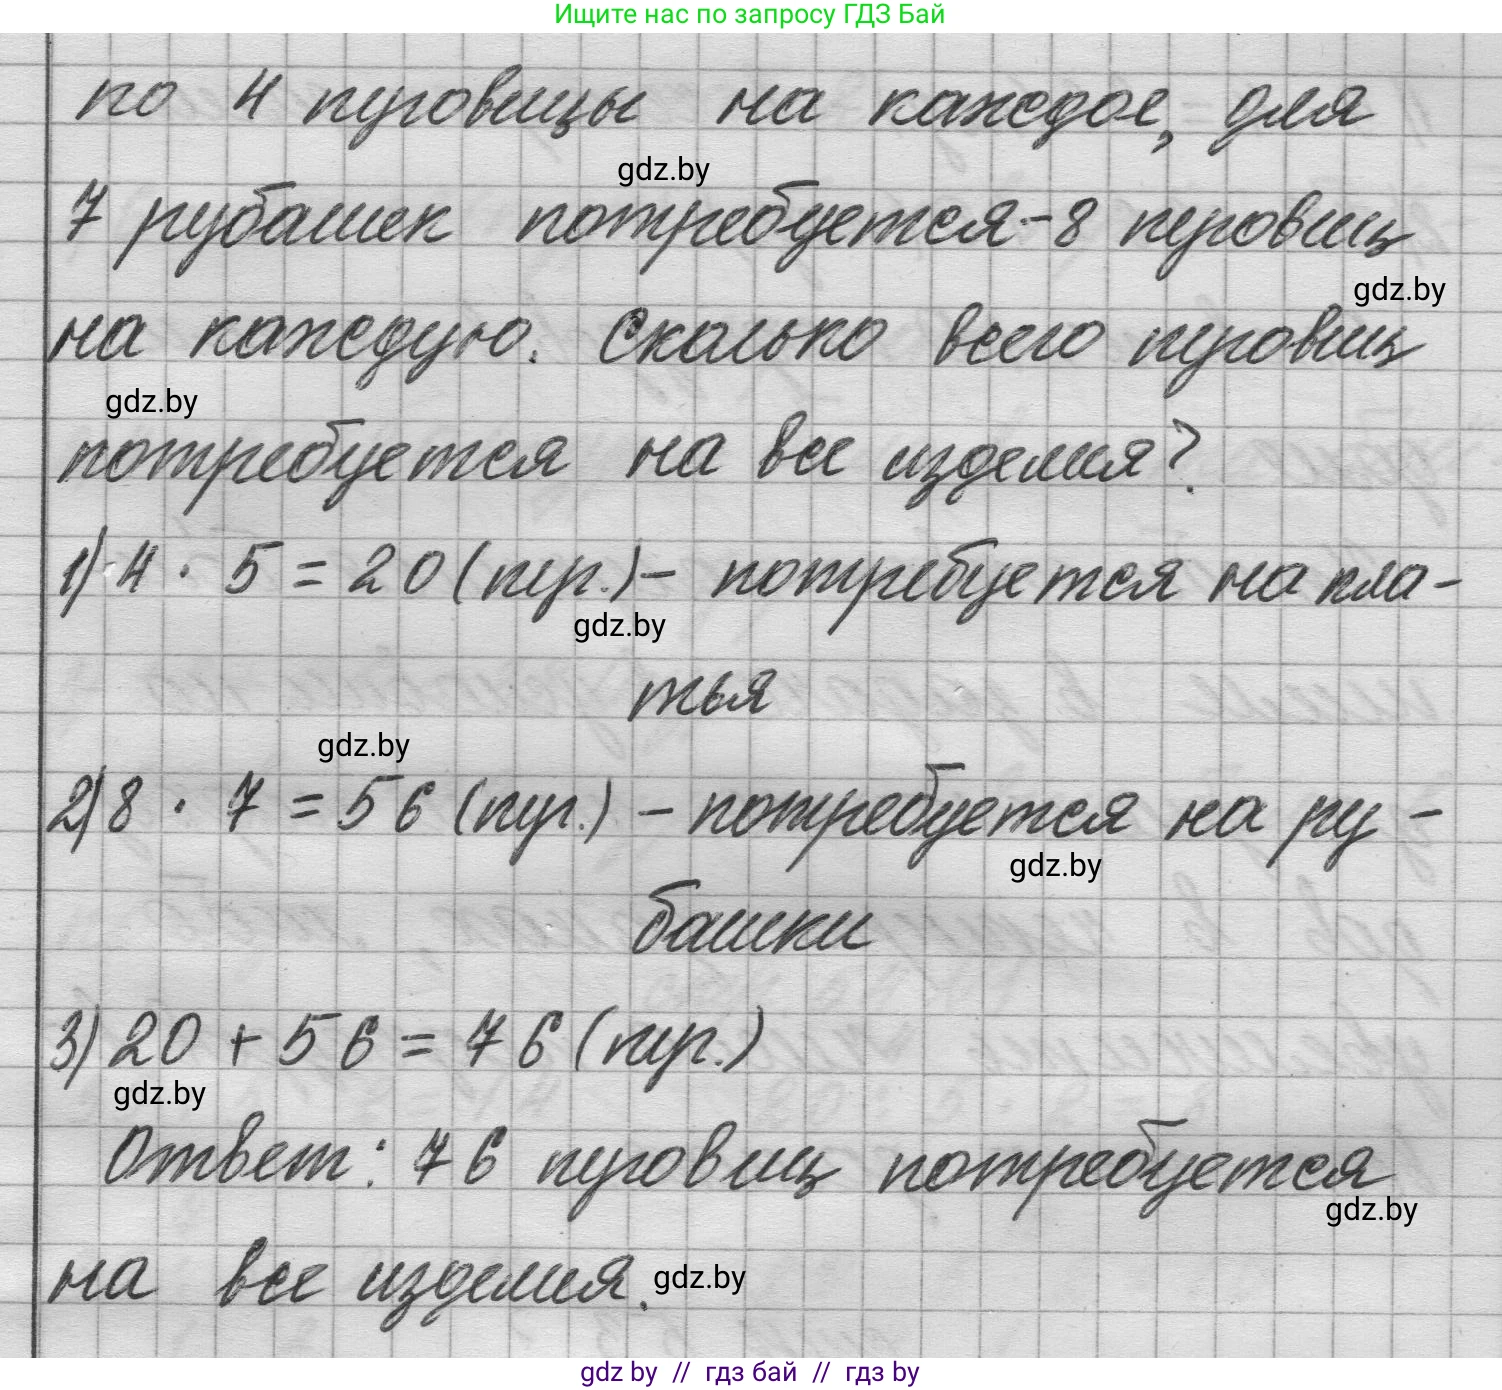 Ищите нас по запросу ГДЗ Бай
по 4 пуговицы на каждое, для
gdz.by
7 рубашек потребуется - 8 пуговиц
gdz.by
на каждую. Сколько всего пуговиц
gdz.by
потребуется на все изделия?
1) 4 · 5 = 20 (пуг.) - потребуется на пла-
gdz.by
тья
gdz.by
2) 8 · 7 = 56 (пуг.) - потребуется на ру-
gdz.by
башки
3) 20 + 56 = 76 (пуг.)
gdz.by
Ответ: 76 пуговиц потребуется
gdz.by
на все изделия. gdz.by
gdz by // гдз бай // гдз by